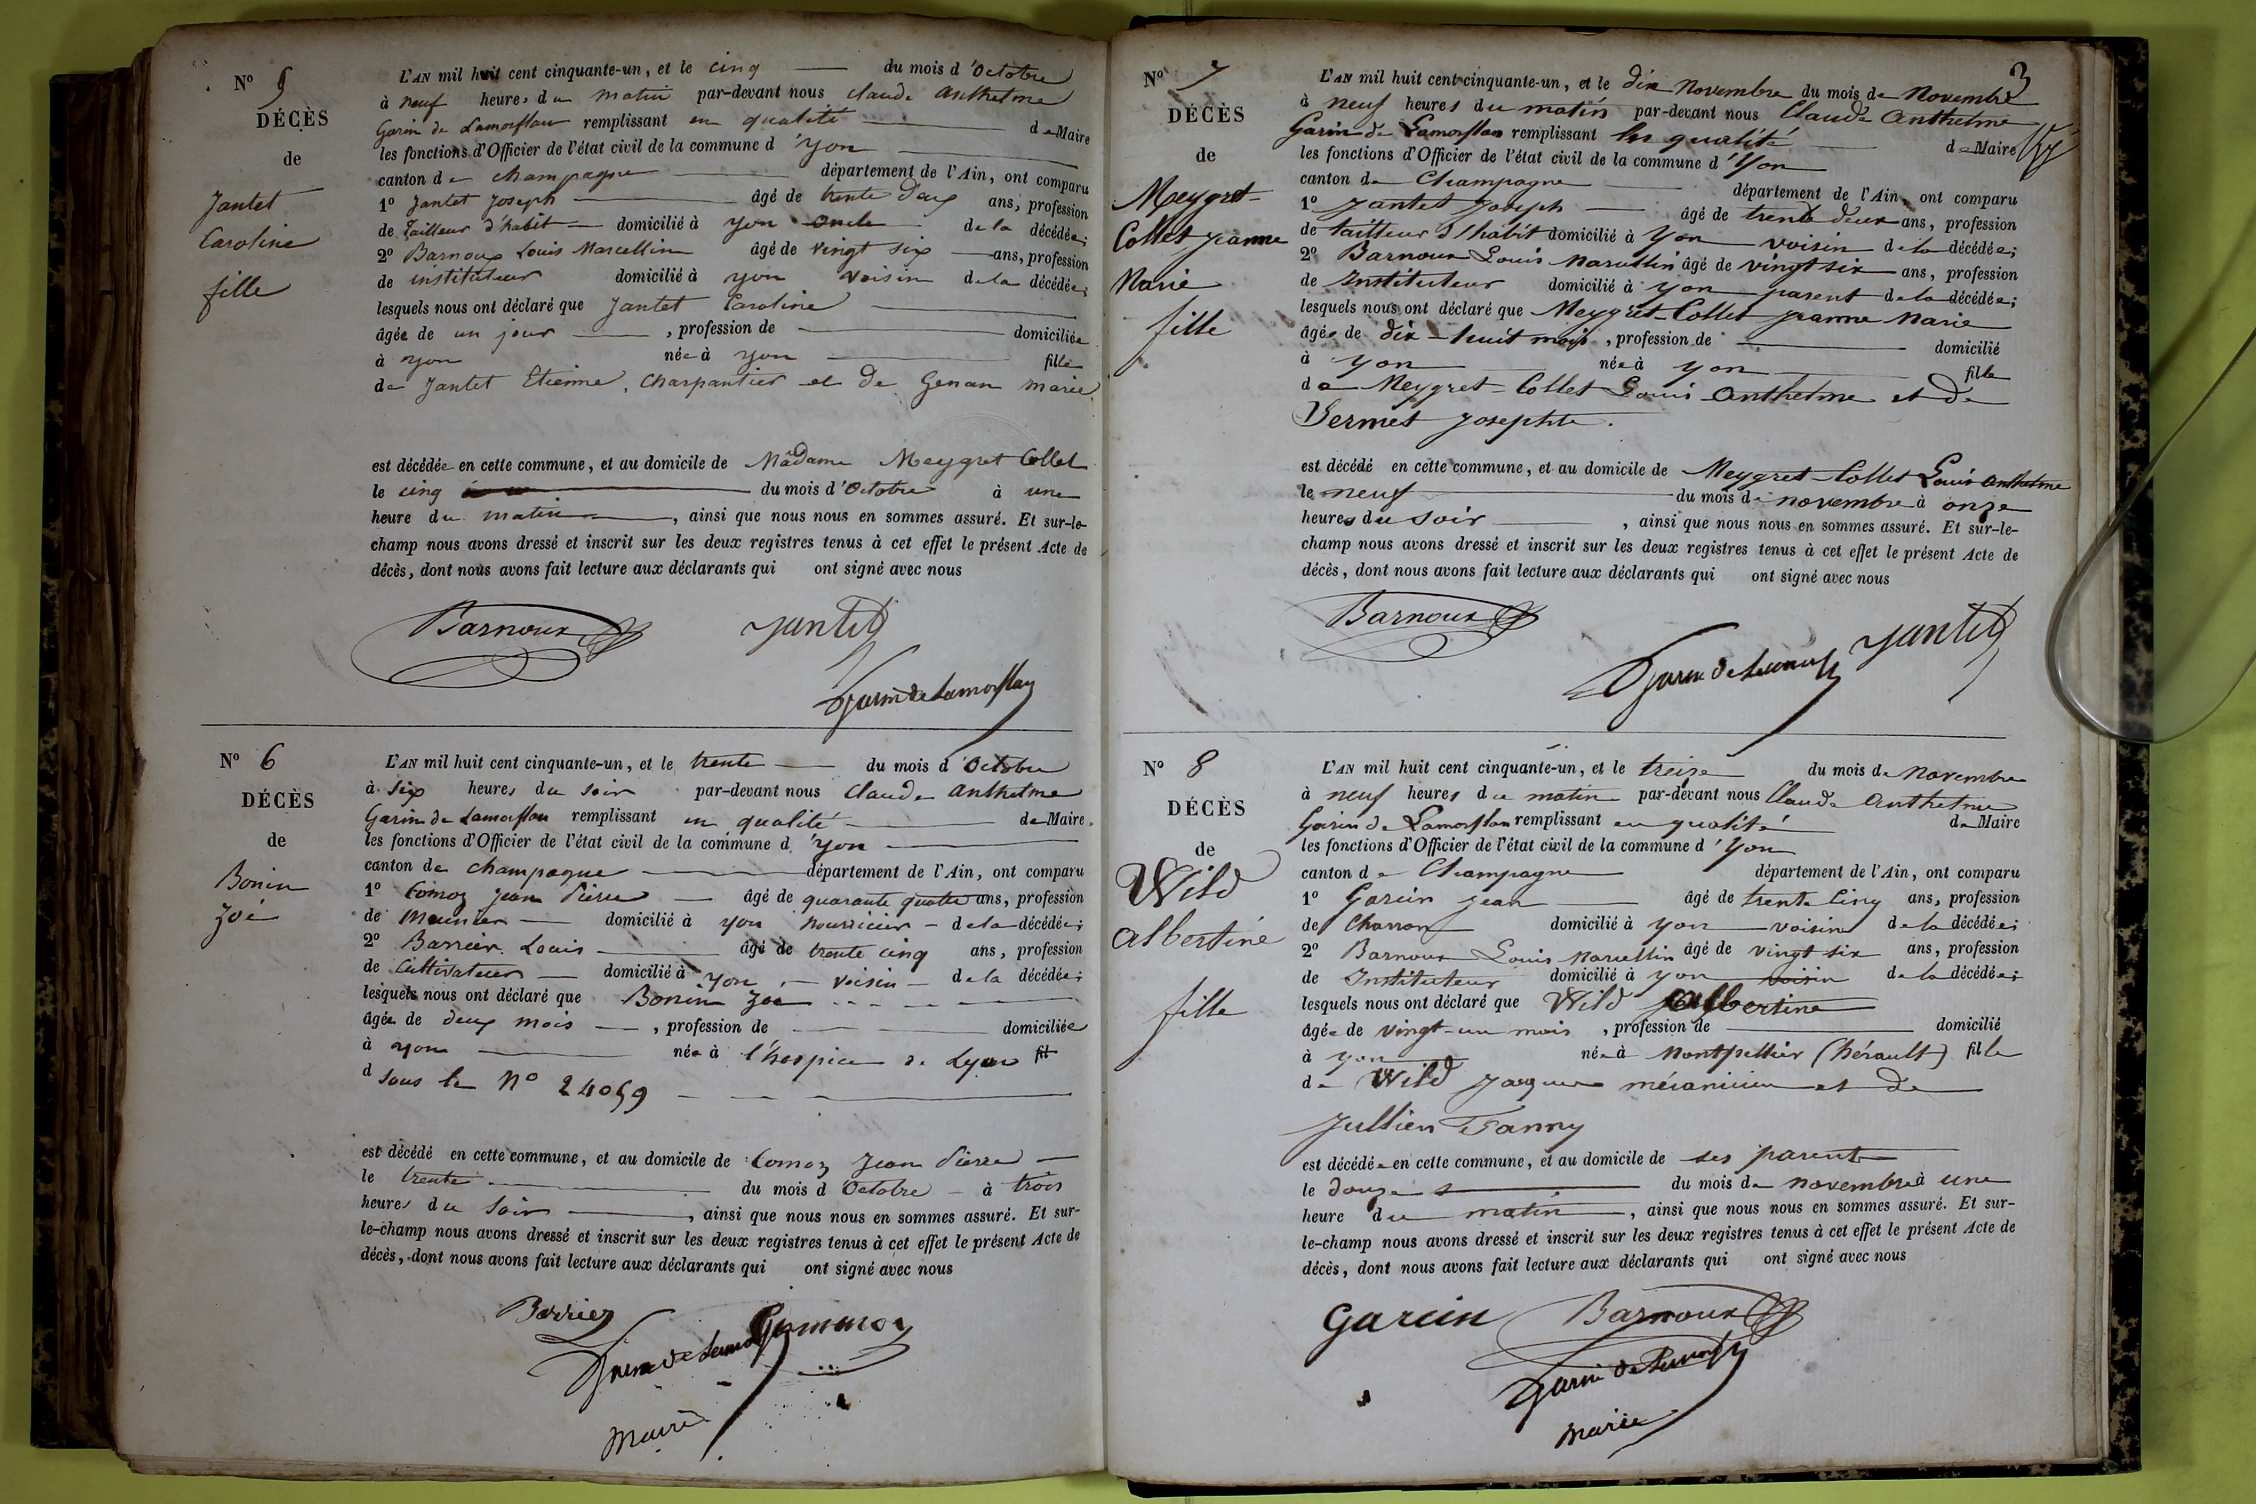 N° 5
DÉCÈS
de
Jantet
Caroline
fille
L'AN mil huit cent cinquante-un, et le cinq du mois d'Octobre
à neuf heures du matin par-devant nous Claude Anthelme
Garin de Lamorflan remplissant en qualité de Maire
les fonctions d'Officier de l'état civil de la commune d'yon
canton de Champagne département de l'Ain, ont comparu
1° Jantet Joseph âgé de trente deux ans, profession
de Tailleur d'habit domicilié à yon oncle de la décédée;
2° Barnoux Louis Marcellin âgé de vingt six ans, profession
de instituteur domicilié à yon voisin de la décédée;
lesquels nous ont déclaré que Jantet Caroline
âgée de un jour, profession de domiciliée
à yon née à yon fille
de Jantet Etienne, Charpantier et de Genan marie
est décédée en cette commune, et au domicile de Madame Meygret Collet
le cinq du mois d'Octobre à une
heure du matin, ainsi que nous nous en sommes assuré. Et sur-le-
champ nous avons dressé et inscrit sur les deux registres tenus à cet effet le présent Acte de
décès, dont nous avons fait lecture aux déclarants qui ont signé avec nous
Barnoux Jantet
Garin de Lamorflan
N° 6
DÉCÈS
de
Bonin
Zoé
L'AN mil huit cent cinquante-un, et le trente du mois d'Octobre
à six heures du soir par-devant nous Claude Anthelme
Garin de Lamorflan remplissant en qualité de Maire
les fonctions d'Officier de l'état civil de la commune d'yon
canton de Champagne département de l'Ain, ont comparu
1° Comoz Jean Pierre âgé de quarante quatre ans, profession
de Meunier domicilié à yon nourricier de la décédée;
2° Barrier Louis âgé de trente cinq ans, profession
de Cultivateur domicilié à yon voisin de la décédée;
lesquels nous ont déclaré que Bonin Zoé
âgée de deux mois, profession de domiciliée
à yon née à l'hospice de Lyon fil
d sous le N° 24059
est décédé en cette commune, et au domicile de Comoz Jean Pierre
le trente du mois d Octobre à trois
heures du soir, ainsi que nous nous en sommes assuré. Et sur-
le-champ nous avons dressé et inscrit sur les deux registres tenus à cet effet le présent Acte de
décès, dont nous avons fait lecture aux déclarants qui ont signé avec nous
Barrier
Garin de Lamorflan
Maire
3
N° 7
DÉCÈS
de
Meygret-
Collet Jeanne
Marie
fille
L'AN mil huit cent cinquante-un, et le dix Novembre du mois de Novembre
à neuf heures du matin par-devant nous Claude Anthelme
Garin de Lamorflan remplissant en qualité de Maire
les fonctions d'Officier de l'état civil de la commune d'Yon
canton de Champagne département de l'Ain, ont comparu
1° Jantet Joseph âgé de trente deux ans, profession
de tailleur d'habit domicilié à yon voisin de la décédée;
2° Barnoux Louis Marcellin âgé de vingt six ans, profession
de Instituteur domicilié à yon parent de la décédée;
lesquels nous ont déclaré que Meygret-Collet Jeanne Marie
âgée de dix-huit mois, profession de domicilié
à yon née à yon fille
de Meygret-Collet Louis Anthelme et de
Vermet Josephte.
est décédé en cette commune, et au domicile de Meygret-Collet Louis Anthelme
le neuf du mois de novembre à onze
heures du soir, ainsi que nous nous en sommes assuré. Et sur-le-
champ nous avons dressé et inscrit sur les deux registres tenus à cet effet le présent Acte de
décès, dont nous avons fait lecture aux déclarants qui ont signé avec nous
Barnoux Jantet
Garin de Lamorflan
N° 8
DÉCÈS
de
Wild
Albertine
fille
L'AN mil huit cent cinquante-un, et le treize du mois de Novembre
à neuf heures du matin par-devant nous Claude Anthelme
Garin de Lamorflan remplissant en qualité de Maire
les fonctions d'Officier de l'état civil de la commune d'Yon
canton de Champagne département de l'Ain, ont comparu
1° Garcin Jean âgé de trente cinq ans, profession
de Charron domicilié à yon voisin de la décédée;
2° Barnoux Louis Marcellin âgé de vingt six ans, profession
de Instituteur domicilié à yon voisin de la décédée;
lesquels nous ont déclaré que Wild Albertine
âgée de vingt-un mois, profession de domicilié
à yon née à Montpellier (hérault) fille
de Wild Jacques mécanicien et de
Jullien Fanny
est décédée en cette commune, et au domicile de ses parents
le douze du mois de novembre à une
heure du matin, ainsi que nous nous en sommes assuré. Et sur-
le-champ nous avons dressé et inscrit sur les deux registres tenus à cet effet le présent Acte de
décès, dont nous avons fait lecture aux déclarants qui ont signé avec nous
Garcin Barnoux
Garin de Lamorflan
Maire